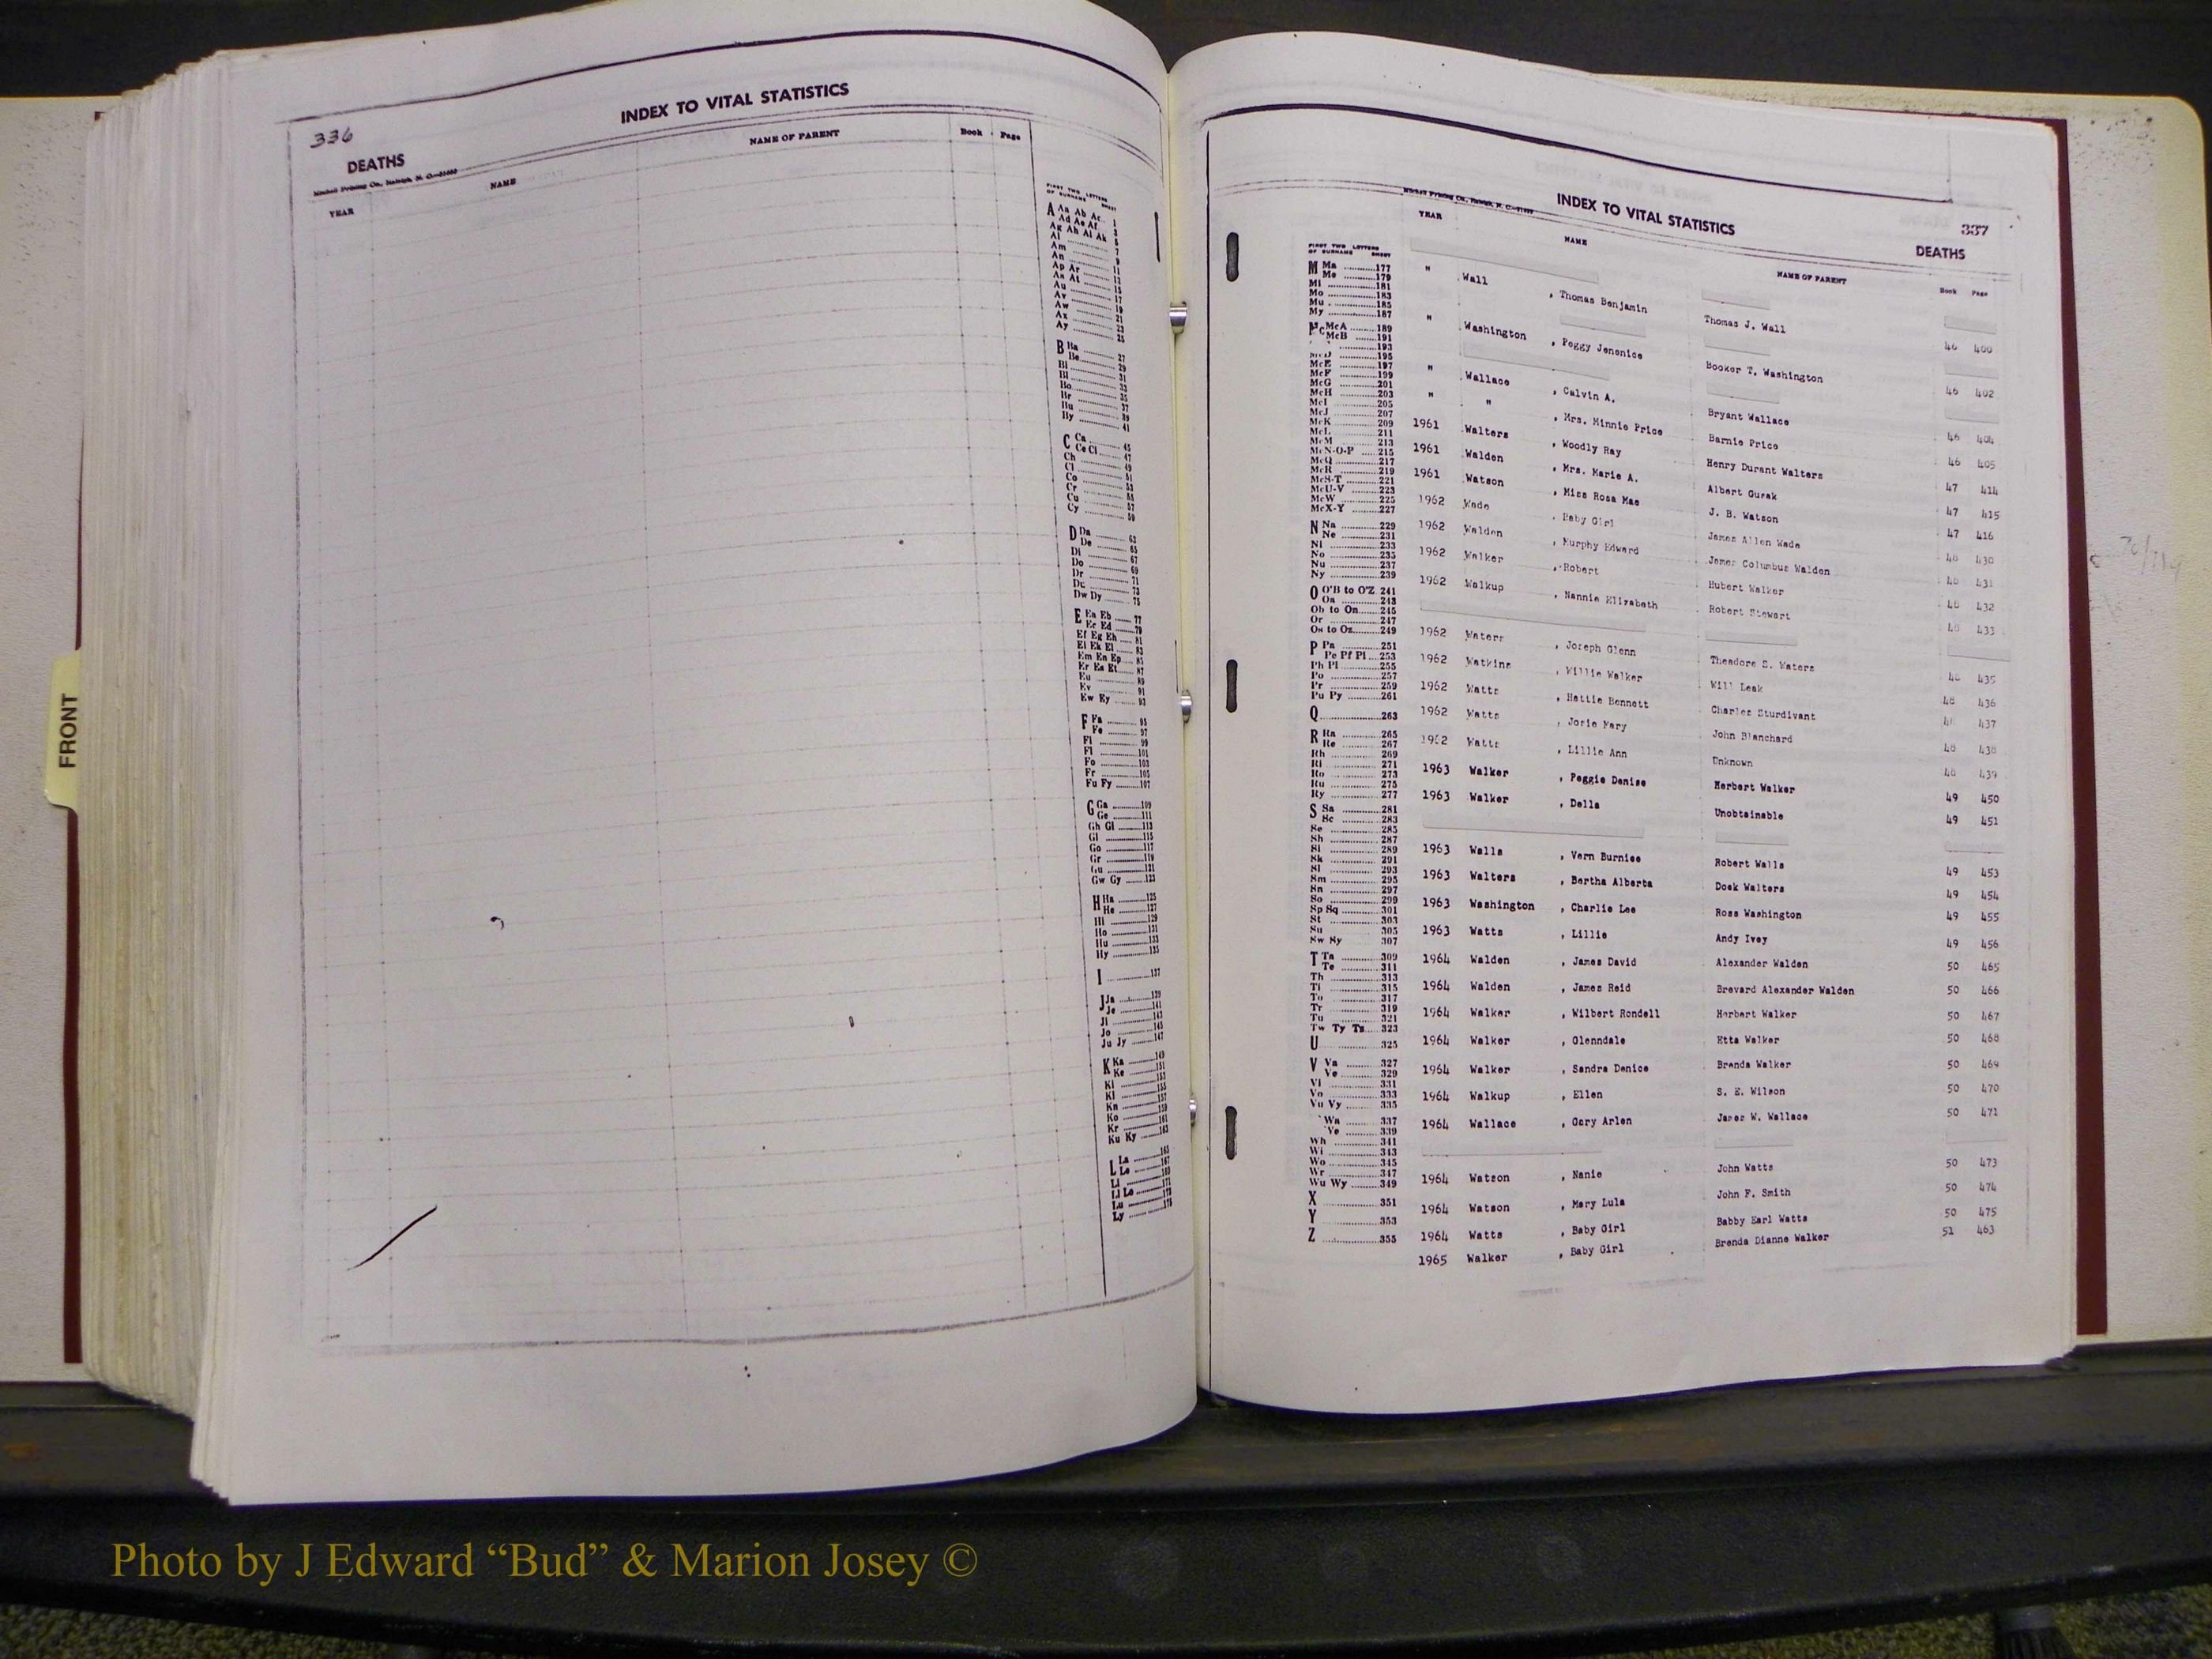 336
INDEX TO VITAL STATISTICS
DEATHS
NAME OF PARENT
Book Page
NAME
YEAR
FIRST TWO LETTERS
OF SURNAME SHEET
A Aa Ab Ac 1
Ad Ae Af 3
Ag Ah Ai Ak 5
Al 7
Am 9
An 11
Ap Ar 13
As At 15
Au 17
Av 19
Aw 21
Ax 23
Ay 25
B Ba 27
Be 29
Bi 31
Bl 33
Bo 35
Br 37
Bu 39
By 41
C Ca 45
Ce Ci 47
Ch 49
Cl 51
Co 53
Cr 55
Cu 57
Cy 59
D Da 63
De 65
Di 67
Do 69
Dr 71
Du 73
Dw Dy 75
E Ea Eb 77
Ec Ed 79
Ef Eg Eh 81
Ei Ek El 83
Em En Ep 85
Er Es Et 87
Eu 89
Ev 91
Ew Ey 93
F Fa 95
Fe 97
Fi 99
Fl 101
Fo 103
Fr 105
Fu Fy 107
G Ga 109
Ge 111
Gh Gi 113
Gl 115
Go 117
Gr 119
Gu 121
Gw Gy 123
H Ha 125
He 127
Hi 129
Ho 131
Hu 133
Hy 135
I 137
J Ja 139
Je 141
Ji 143
Jo 145
Ju Jy 147
K Ka 149
Ke 151
Ki 153
Kl 155
Kn 157
Ko 159
Kr 161
Ku Ky 163
L La 165
Le 167
Li
Ll Lo
Lu
Ly 175
FRONT
INDEX TO VITAL STATISTICS
337
DEATHS
YEAR NAME NAME OF PARENT Book Page
FIRST TWO LETTERS
OF SURNAME SHEET
M Ma 177
Me 179
Mi 181
Mo 183
Mu 185
My 187
Mc McA 189
McB 191
193
McD 195
McE 197
McF 199
McG 201
McH 203
McI 205
McJ 207
McK 209
McL 211
McM 213
McN-O-P 215
McQ 217
McR 219
McS-T 221
McU-V 223
McW 225
McX-Y 227
N Na 229
Ne 231
Ni 233
No 235
Nu 237
Ny 239
O O'B to O'Z 241
Oa 243
Ob to On 245
Or 247
Os to Oz 249
P Pa 251
Pe Pf Pl 253
Ph Pi 255
Po 257
Pr 259
Pu Py 261
Q 263
R Ra 265
Re 267
Rh 269
Ri 271
Ro 273
Ru 275
Ry 277
S Sa 281
Sc 283
Se 285
Sh 287
Si 289
Sk 291
Sl 293
Sm 295
Sn 297
So 299
Sp Sq 301
St 303
Su 305
Sw Sy 307
T Ta 309
Te 311
Th 313
Ti 315
To 317
Tr 319
Tu 321
Tw Ty Tz 323
U 325
V Va 327
Ve 329
Vi 331
Vo 333
Vu Vy 335
Wa 337
We 339
Wh 341
Wi 343
Wo 345
Wr 347
Wu Wy 349
X 351
Y 353
Z 355
" Wall , Thomas Benjamin Thomas J. Wall 46 400
" Washington , Peggy Jenenice Booker T. Washington 46 402
" Wallace , Calvin A. Bryant Wallace 46 404
" " , Mrs. Minnie Price Barnie Price 46 405
1961 Walters , Woodly Ray Henry Durant Walters 47 414
1961 Walden , Mrs. Marie A. Albert Gusak 47 415
1961 Watson , Miss Rosa Mae J. B. Watson 47 416
1962 Wade , Baby Girl James Allen Wade 48 430
1962 Walden , Murphy Edward James Columbus Walden 48 431
1962 Walker , Robert Hubert Walker 48 432
1962 Walkup , Nannie Elizabeth Robert Stewart 48 433
1962 Waters , Joseph Glenn Theodore S. Waters 48 435
1962 Watkins , Willie Walker Will Leak 48 436
1962 Watts , Hettie Bennett Charles Sturdivant 48 437
1962 Watts , Josie Mary John Blanchard 48 438
1962 Watts , Lillie Ann Unknown 48 439
1963 Walker , Peggie Denise Herbert Walker 49 450
1963 Walker , Della Unobtainable 49 451
1963 Walls , Vern Burnise Robert Walls 49 453
1963 Walters , Bertha Alberta Dosk Walters 49 454
1963 Washington , Charlie Lee Ross Washington 49 455
1963 Watts , Lillie Andy Ivey 49 456
1964 Walden , James David Alexander Walden 50 465
1964 Walden , James Reid Brevard Alexander Walden 50 466
1964 Walker , Wilbert Rondell Herbert Walker 50 467
1964 Walker , Glenndale Etta Walker 50 468
1964 Walker , Sandra Denice Brenda Walker 50 469
1964 Walkup , Ellen S. E. Wilson 50 470
1964 Wallace , Gary Arlen James W. Wallace 50 471
1964 Watson , Nanie John Watts 50 473
1964 Watson , Mary Lula John F. Smith 50 474
1964 Watts , Baby Girl Babby Earl Watts 50 475
1965 Walker , Baby Girl Brenda Dianne Walker 51 463
Photo by J Edward “Bud” & Marion Josey ©